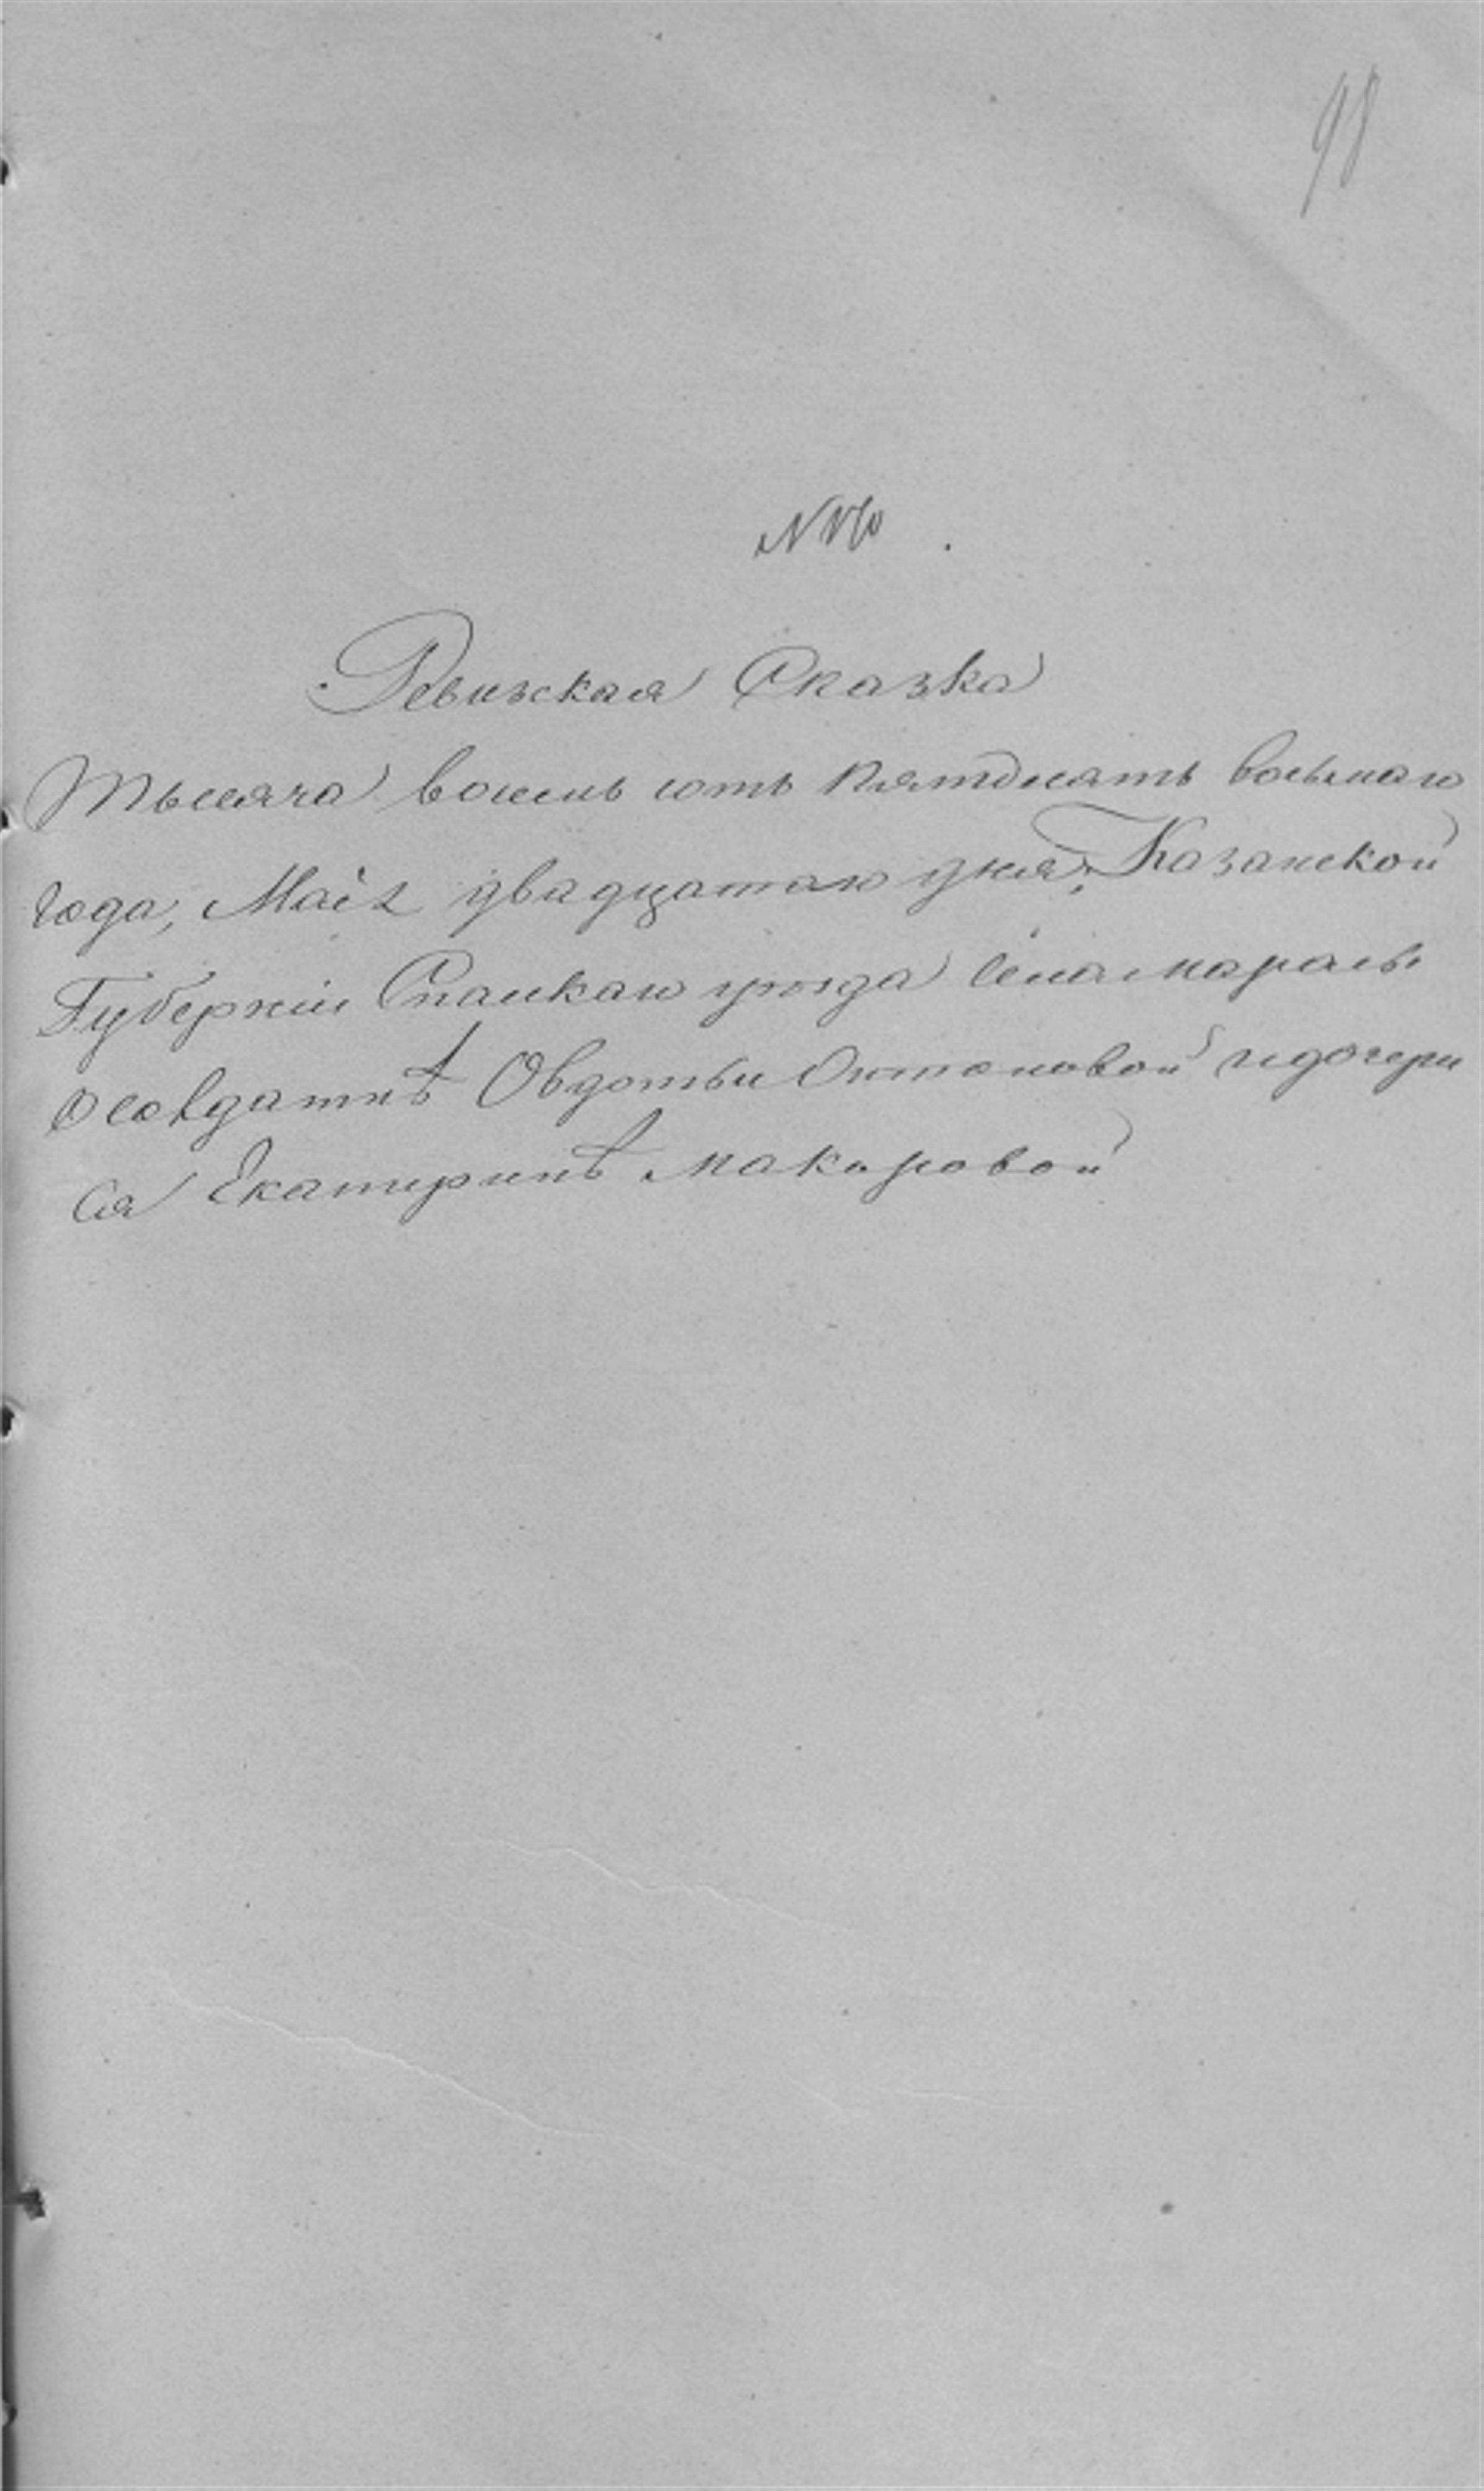 98
Ревизская Сказка
Тысяча восемь сотъ пятдесятъ восьмаго
года, Маія двадцатаго дня, Казанской
Губерніи Спаскаго уѣзда села марасы
о солдаткѣ Овдотьи Онтоновой и дочери
ея Екатеринѣ Макаровой